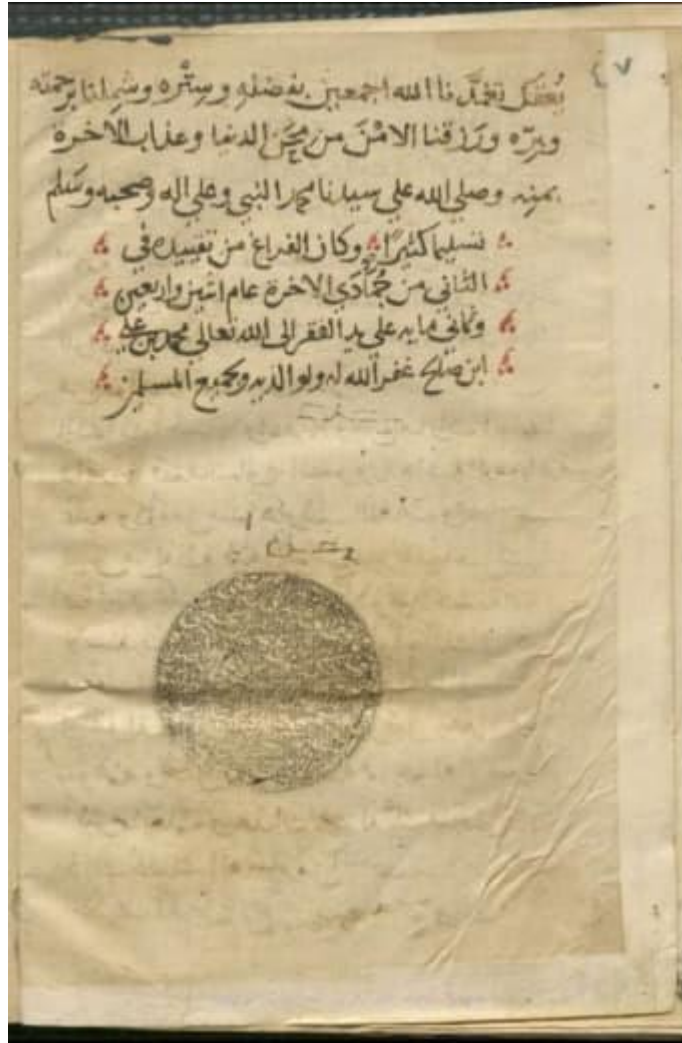 ٧
تغمدنا الله اجمعين بفضله وسِتْره وشملنا برحمته
وبِرّه ورَزقنا الامْنَ من مِحَن الدنيا وعذاب الاخرة
بمنه وصلي الله علي سيدنا محمد النبي وعلي اله وصحبه وسَلم
تسليما كثيرًا وكان الفراغ من تقييده في
الثاني من جُمَادَي الاخرة عام اثنين واربعين
وثماني مايه علي يد الفقير الى الله تعالي محمد بن علي
ابن صلح غفر الله له ولوالديه ولجميع المسلمين
وقف